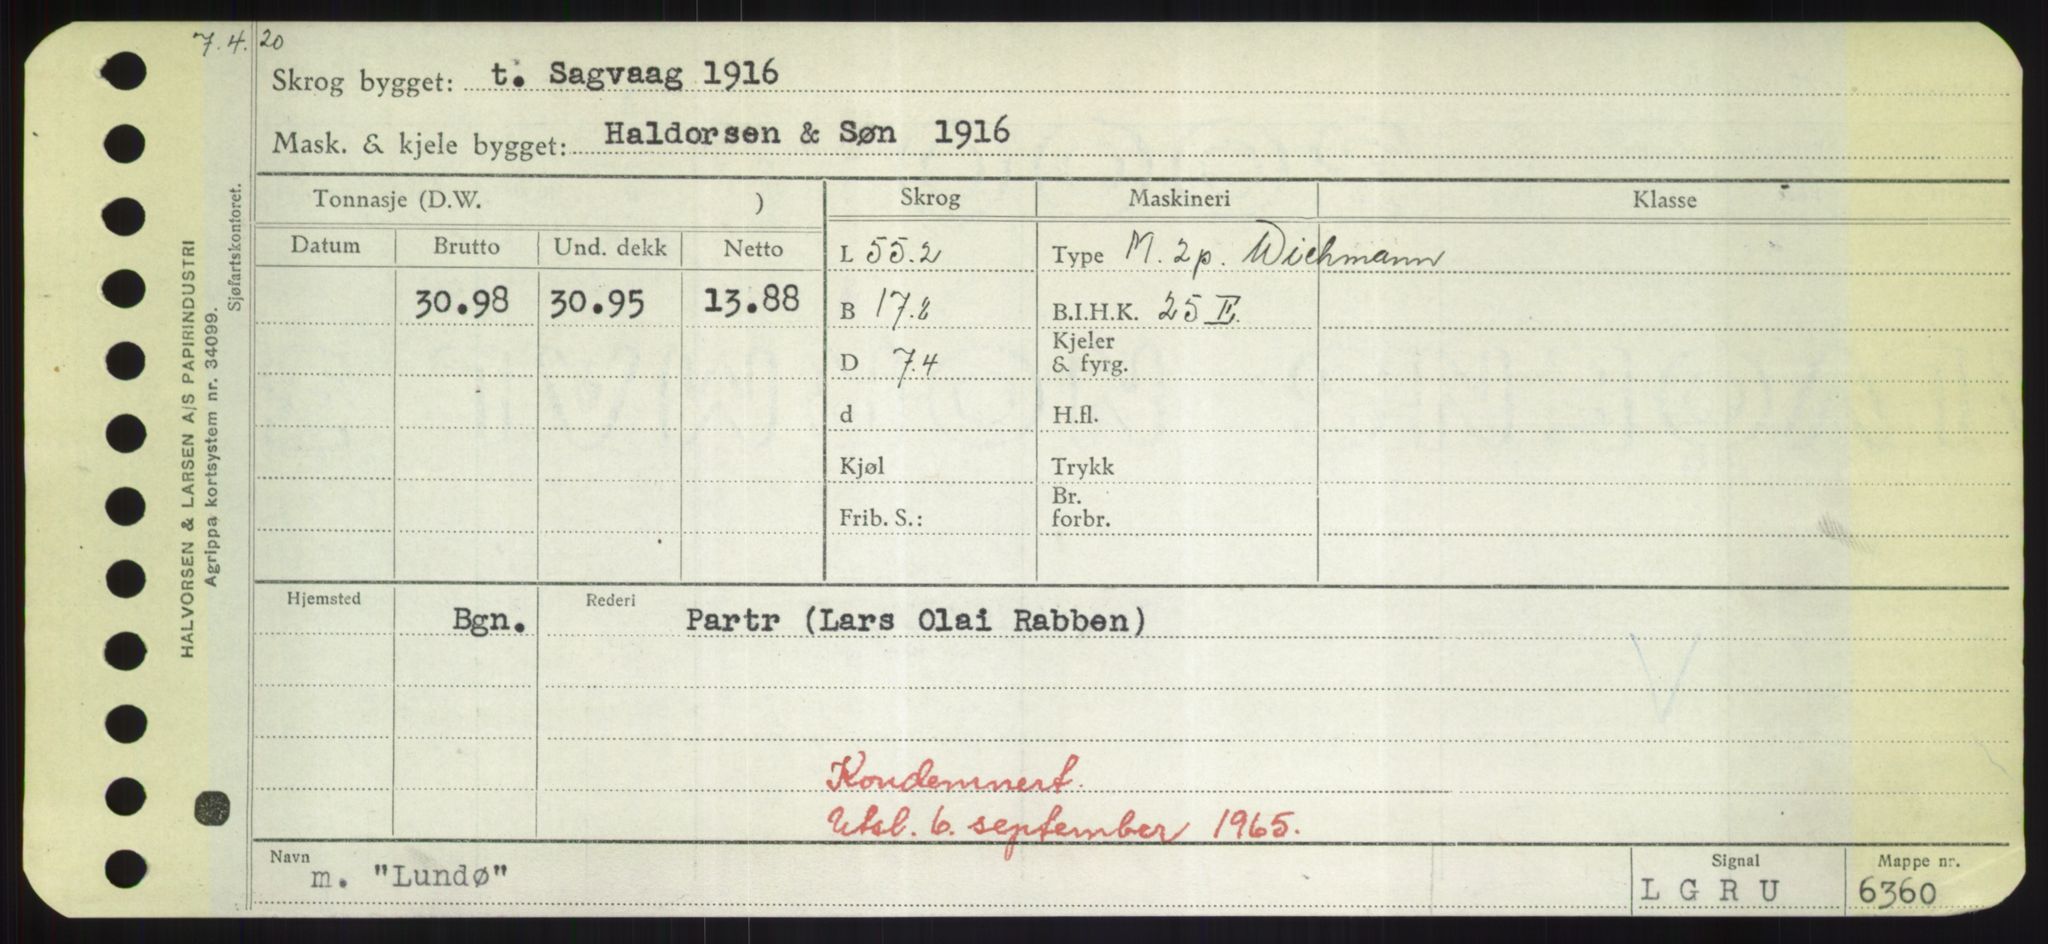 7.4.20
Skrog bygget: t. Sagvaag 1916
Mask. & kjele bygget: Haldorsen & Søn 1916
HALVORSEN & LARSEN A/S PAPIRINDUSTRI
Agrippa kortsystem nr. 34099.
Sjøfartskontoret.
Tonnasje (D.W. ) Skrog Maskineri Klasse
Datum Brutto Und. dekk Netto L 55.2 Type M. 2 p. Wichmann
30.98 30.95 13.88 B 17.2 B.I.H.K. 25 E.
Kjeler
D 7.4 & fyrg.
d H.fl.
Kjøl Trykk
Br.
Frib. S.: forbr.
Hjemsted Rederi
Bgn. Partr (Lars Olai Rabben)
Kondemnert.
Utsl. 6. september 1965.
Navn Signal Mappe nr.
m. "Lundø" L G R U 6360